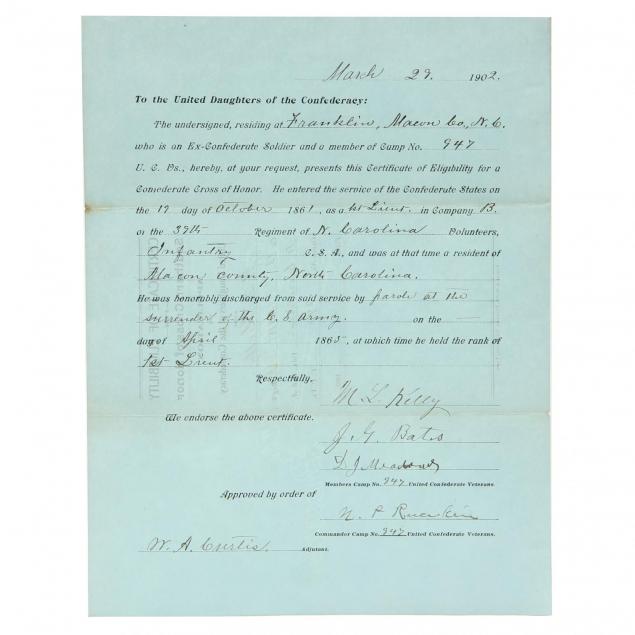 March 29. 1902.
To the United Daughters of the Confederacy:
The undersigned, residing at Franklin, Macon Co., N.C.
who is an Ex-Confederate Soldier and a member of Camp No. 947
U. C. Vs., hereby, at your request, presents this Certificate of Eligibility for a
Confederate Cross of Honor. He entered the service of the Confederate States on
the 19 day of October 1861, as a 1st Lieut. in Company B.
of the 39th Regiment of N. Carolina Volunteers,
Infantry C.S.A., and was at that time a resident of
Macon County, North Carolina.
He was honorably discharged from said service by parole at the
surrender of the C. S Army. on the —
day of April 1865, at which time he held the rank of
1st Lieut.
Respectfully,
M L Kelly
We endorse the above certificate.
J. G. Bates
D J Meadows
Members Camp No. 947 United Confederate Veterans.
Approved by order of
N. P. Rankin
Commander Camp No. 947 United Confederate Veterans.
W. A. Curtis. Adjutant.